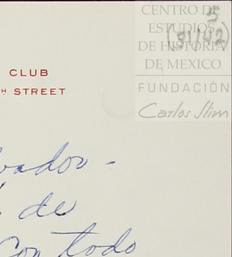 CENTRO DE
ESTUDIOS
DE HISTORIA
DE MEXICO
FUNDACIÓN
Carlos Slim
5
(31/42)
CLUB
TH STREET
vador -
de
Con todo